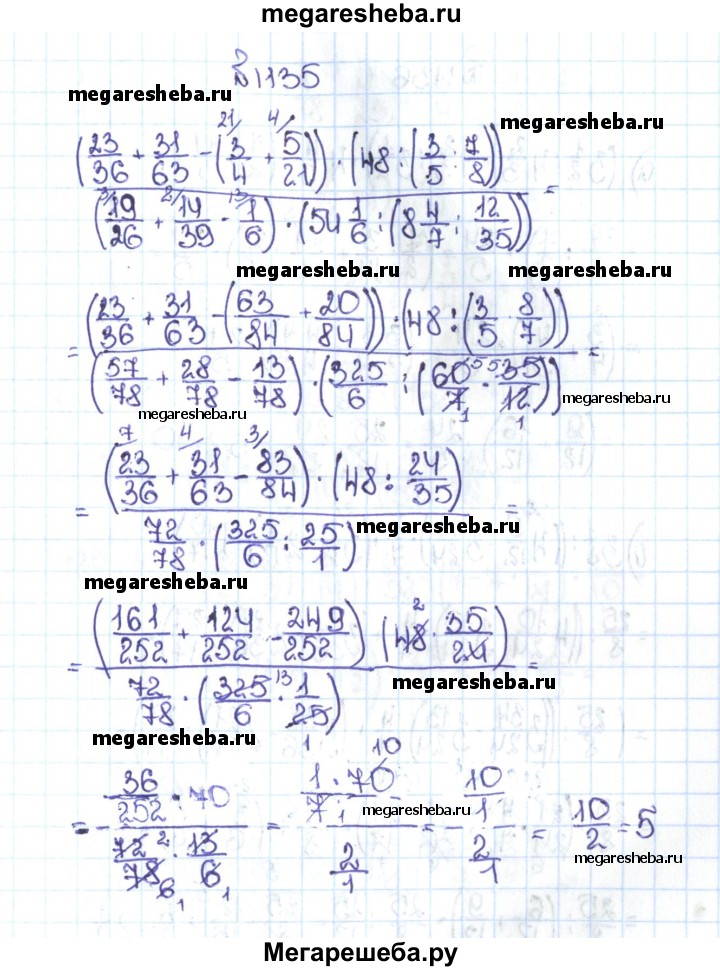 megaresheba.ru
№1135
megaresheba.ru
megaresheba.ru
(23/36 + 31/63 - (3/4 + 5/21)) · (48 : (3/5 : 7/8))
21/ 4/
(19/26 + 14/39 - 1/6) · (54 1/6 : (8 4/7 : 12/35)) =
3/ 2/ 13/
megaresheba.ru megaresheba.ru
= (23/36 + 31/63 - (63/84 + 20/84)) · (48 : (3/5 · 8/7))
(57/78 + 28/78 - 13/78) · (325/6 : (60/7 · 35/12)) =
5 5 1 1
megaresheba.ru megaresheba.ru
7/ 4/ 3/
= (23/36 + 31/63 - 83/84) · (48 : 24/35)
72/78 · (325/6 : 25/1) =
megaresheba.ru
megaresheba.ru
= (161/252 + 124/252 - 249/252) (48 · 35/24)
2
72/78 · (325/6 · 1/25) =
13 1
megaresheba.ru
megaresheba.ru
= - 36/252 · 70
72/78 · 13/6
2 6 1 1
= 1 · 70
7 1
10
2/1
megaresheba.ru
= - 10/1
2/1
= 10/2 = 5
megaresheba.ru
Мегарешеба.ру